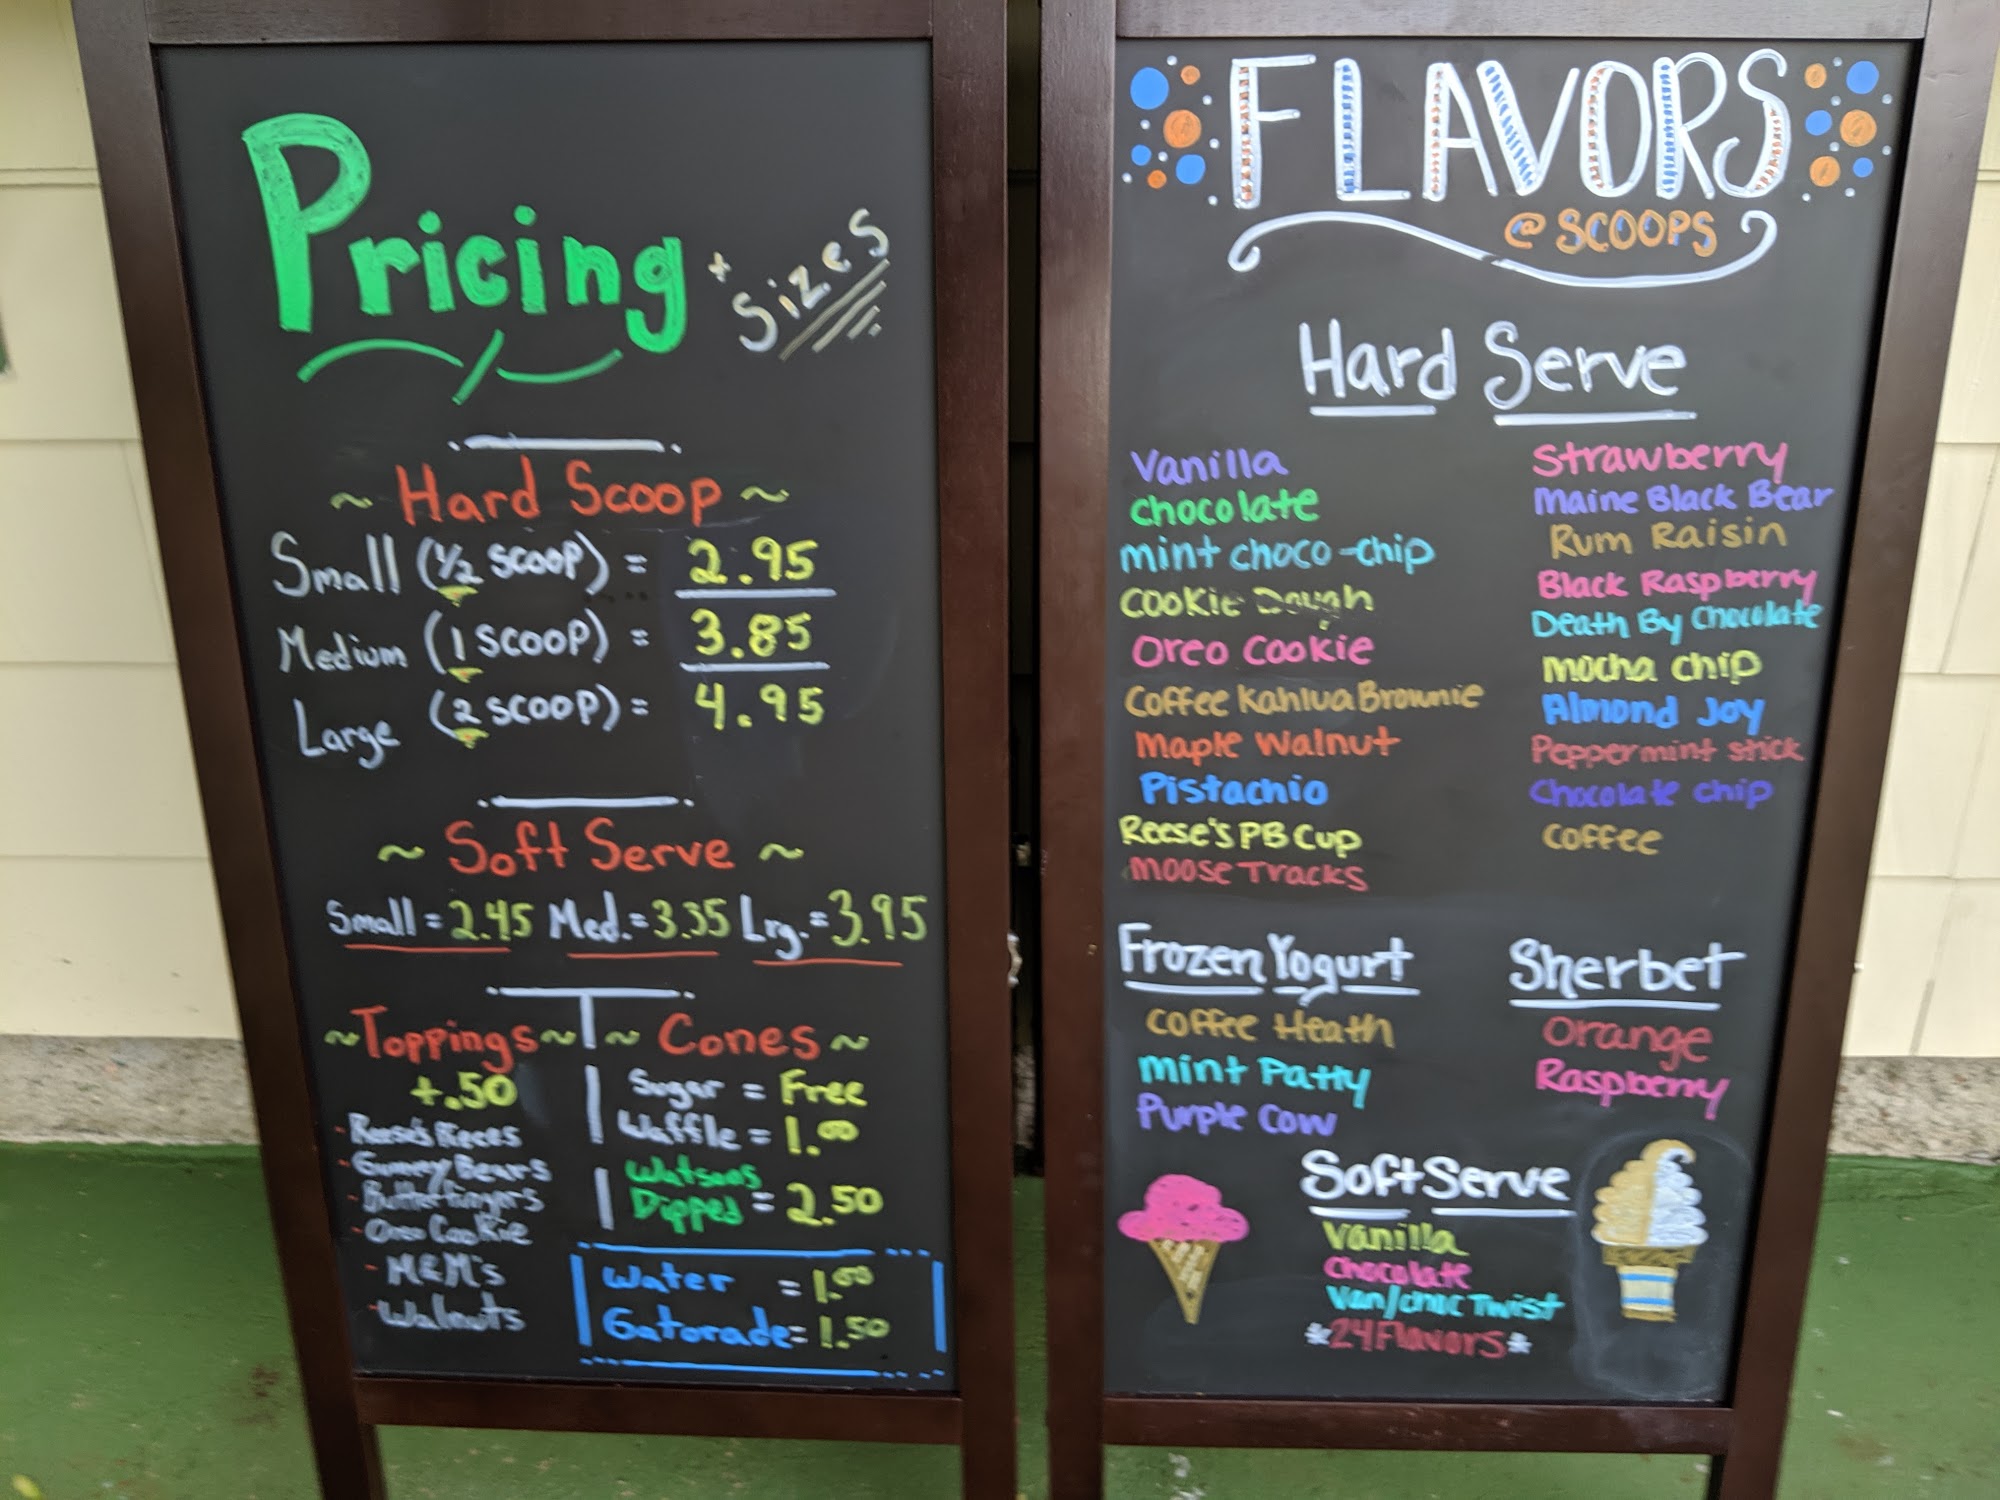 Pricing
+ Sizes
~ Hard Scoop ~
Small (1/2 scoop) = 2.95
Medium (1 scoop) = 3.85
Large (2 scoop) = 4.95
~ Soft Serve ~
Small = 2.45 Med. = 3.35 Lrg. = 3.95
~ Toppings ~
+.50
- Reese's Pieces
- Gummy Bears
- Butterfingers
- Oreo Cookie
- M&M's
- Walnuts
~ Cones ~
Sugar = Free
Waffle = 1.00
Watsons
Dipped = 2.50
Water = 1.00
Gatorade = 1.50
FLAVORS
@ SCOOPS
Hard Serve
Vanilla
Chocolate
mint choco-chip
Cookie Dough
Oreo Cookie
Coffee Kahlua Brownie
Maple Walnut
Pistachio
Reese's PB Cup
Moose Tracks
Strawberry
Maine Black Bear
Rum Raisin
Black Raspberry
Death By Chocolate
Mocha chip
Almond Joy
Peppermint stick
Chocolate chip
Coffee
Frozen Yogurt
Coffee Heath
Mint Patty
Purple Cow
Sherbet
Orange
Raspberry
Soft Serve
Vanilla
Chocolate
Van/choc Twist
*24 Flavors*